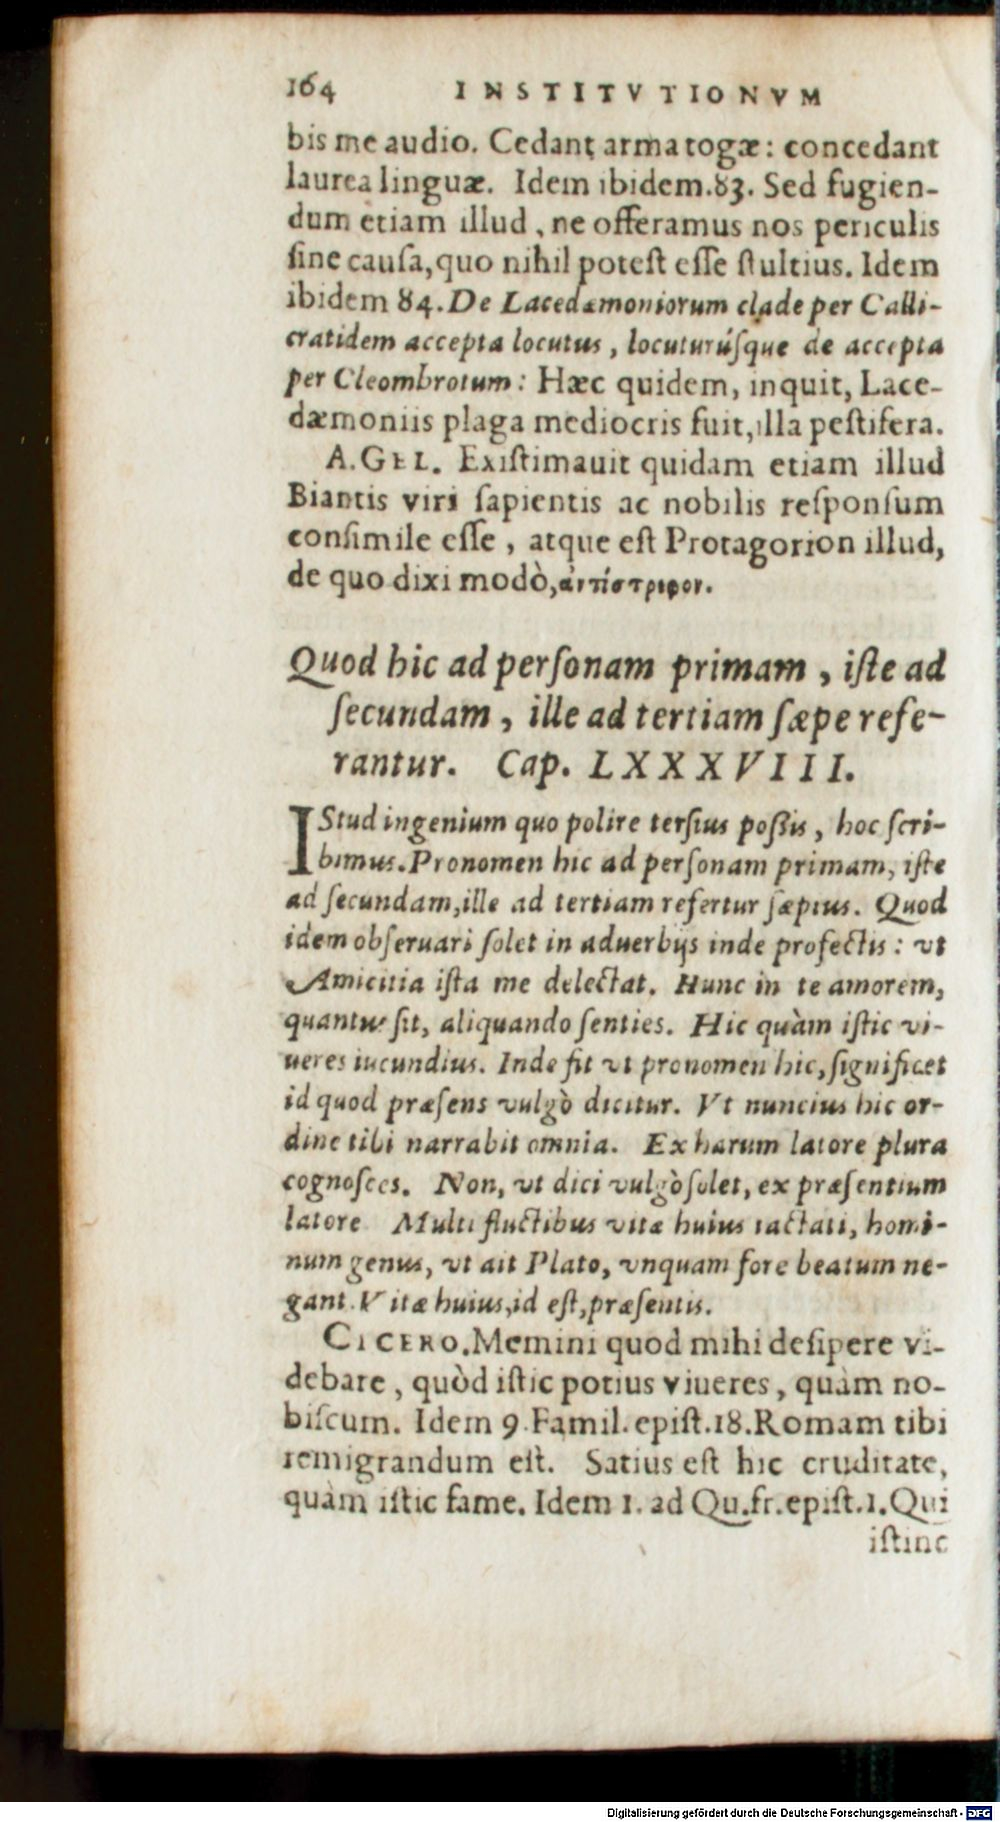 164 INSTITVTIONVM
bis me audio. Cedant arma togæ: concedant
laurea linguæ. Idem ibidem.83. Sed fugien-
dum etiam illud, ne offeramus nos periculis
ſine cauſa, quo nihil poteſt eſſe ſtultius. Idem
ibidem 84. De Lacedæmoniorum clade per Calli-
cratidem accepta locutus, locuturúſque de accepta
per Cleombrotum: Hæc quidem, inquit, Lace-
dæmoniis plaga mediocris fuit, illa peſtifera.
A. GEL. Exiſtimauit quidam etiam illud
Biantis viri ſapientis ac nobilis reſponſum
conſimile eſſe, atque eſt Protagorion illud,
de quo dixi modò, ἀντίστρεφον.
Quod hic ad perſonam primam, iſte ad
ſecundam, ille ad tertiam ſæpe refe-
rantur. Cap. LXXXVIII.
IStud ingenium quo polire terſius poſsis, hoc ſcri-
bimus. Pronomen hic ad perſonam primam, iſte
ad ſecundam, ille ad tertiam refertur ſæpius. Quod
idem obſeruari ſolet in aduerbijs inde profectis: vt
Amicitia iſta me delectat. Hunc in te amorem,
quantus ſit, aliquando ſenties. Hic quàm iſtic vi-
ueres iucundius. Inde fit vt pronomen hic, ſignificet
id quod præſens vulgò dicitur. Vt nuncius hic or-
dine tibi narrabit omnia. Ex harum latore plura
cognoſces. Non, vt dici vulgò ſolet, ex præſentium
latore Multi fluctibus vitæ huius iactati, homi-
num genus, vt ait Plato, vnquam fore beatum ne-
gant. Vitæ huius, id eſt, præſentis.
CICERO. Memini quod mihi deſipere vi-
debare, quòd iſtic potius viueres, quàm no-
biſcum. Idem 9. Famil. epiſt. 18. Romam tibi
remigrandum eſt. Satius eſt hic cruditate,
quàm iſtic fame. Idem 1. ad Qu. fr. epiſt. 1. Qui
iſtinc
Digitalisierung gefördert durch die Deutsche Forschungsgemeinschaft - DFG